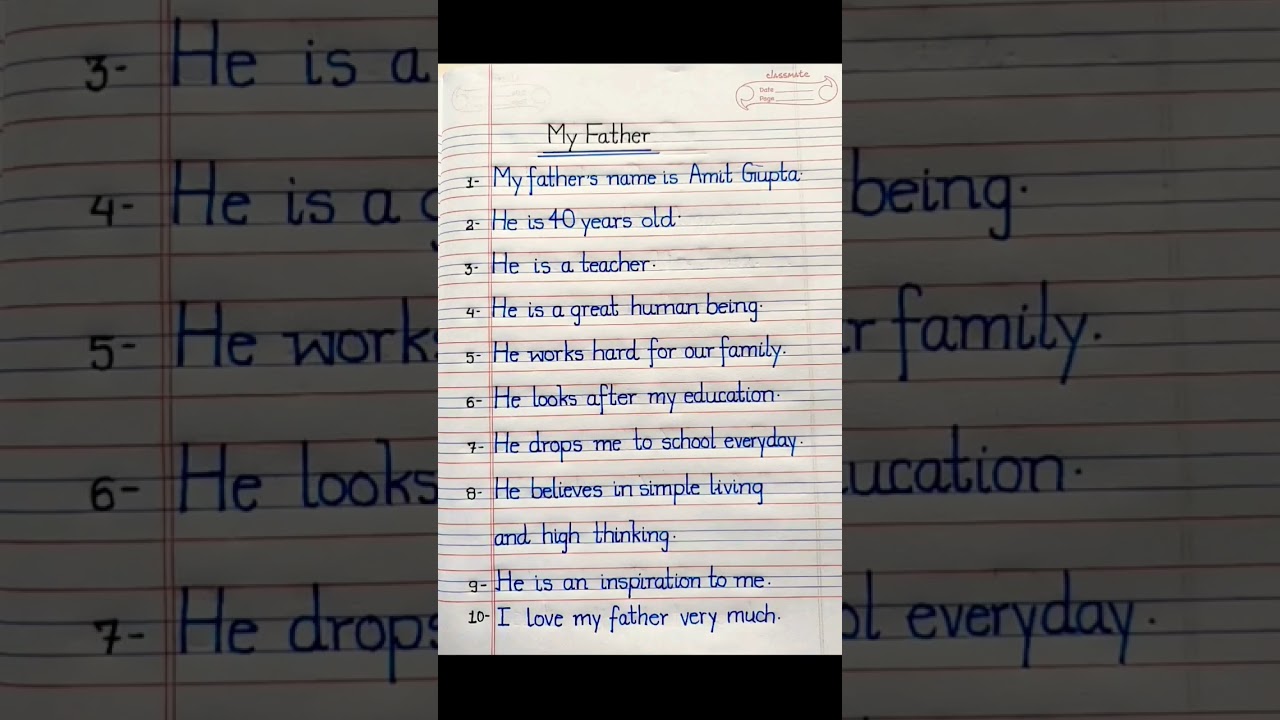 classmate
Date
Page
My Father
1- My father's name is Amit Gupta.
2- He is 40 years old.
3- He is a teacher.
4- He is a great human being.
5- He works hard for our family.
6- He looks after my education.
7- He drops me to school everyday.
8- He believes in simple living
and high thinking.
9- He is an inspiration to me.
10- I love my father very much.
3- He is a
4- He is a g being.
5- He works r family.
6- He looks ucation.
7- He drops ol everyday.